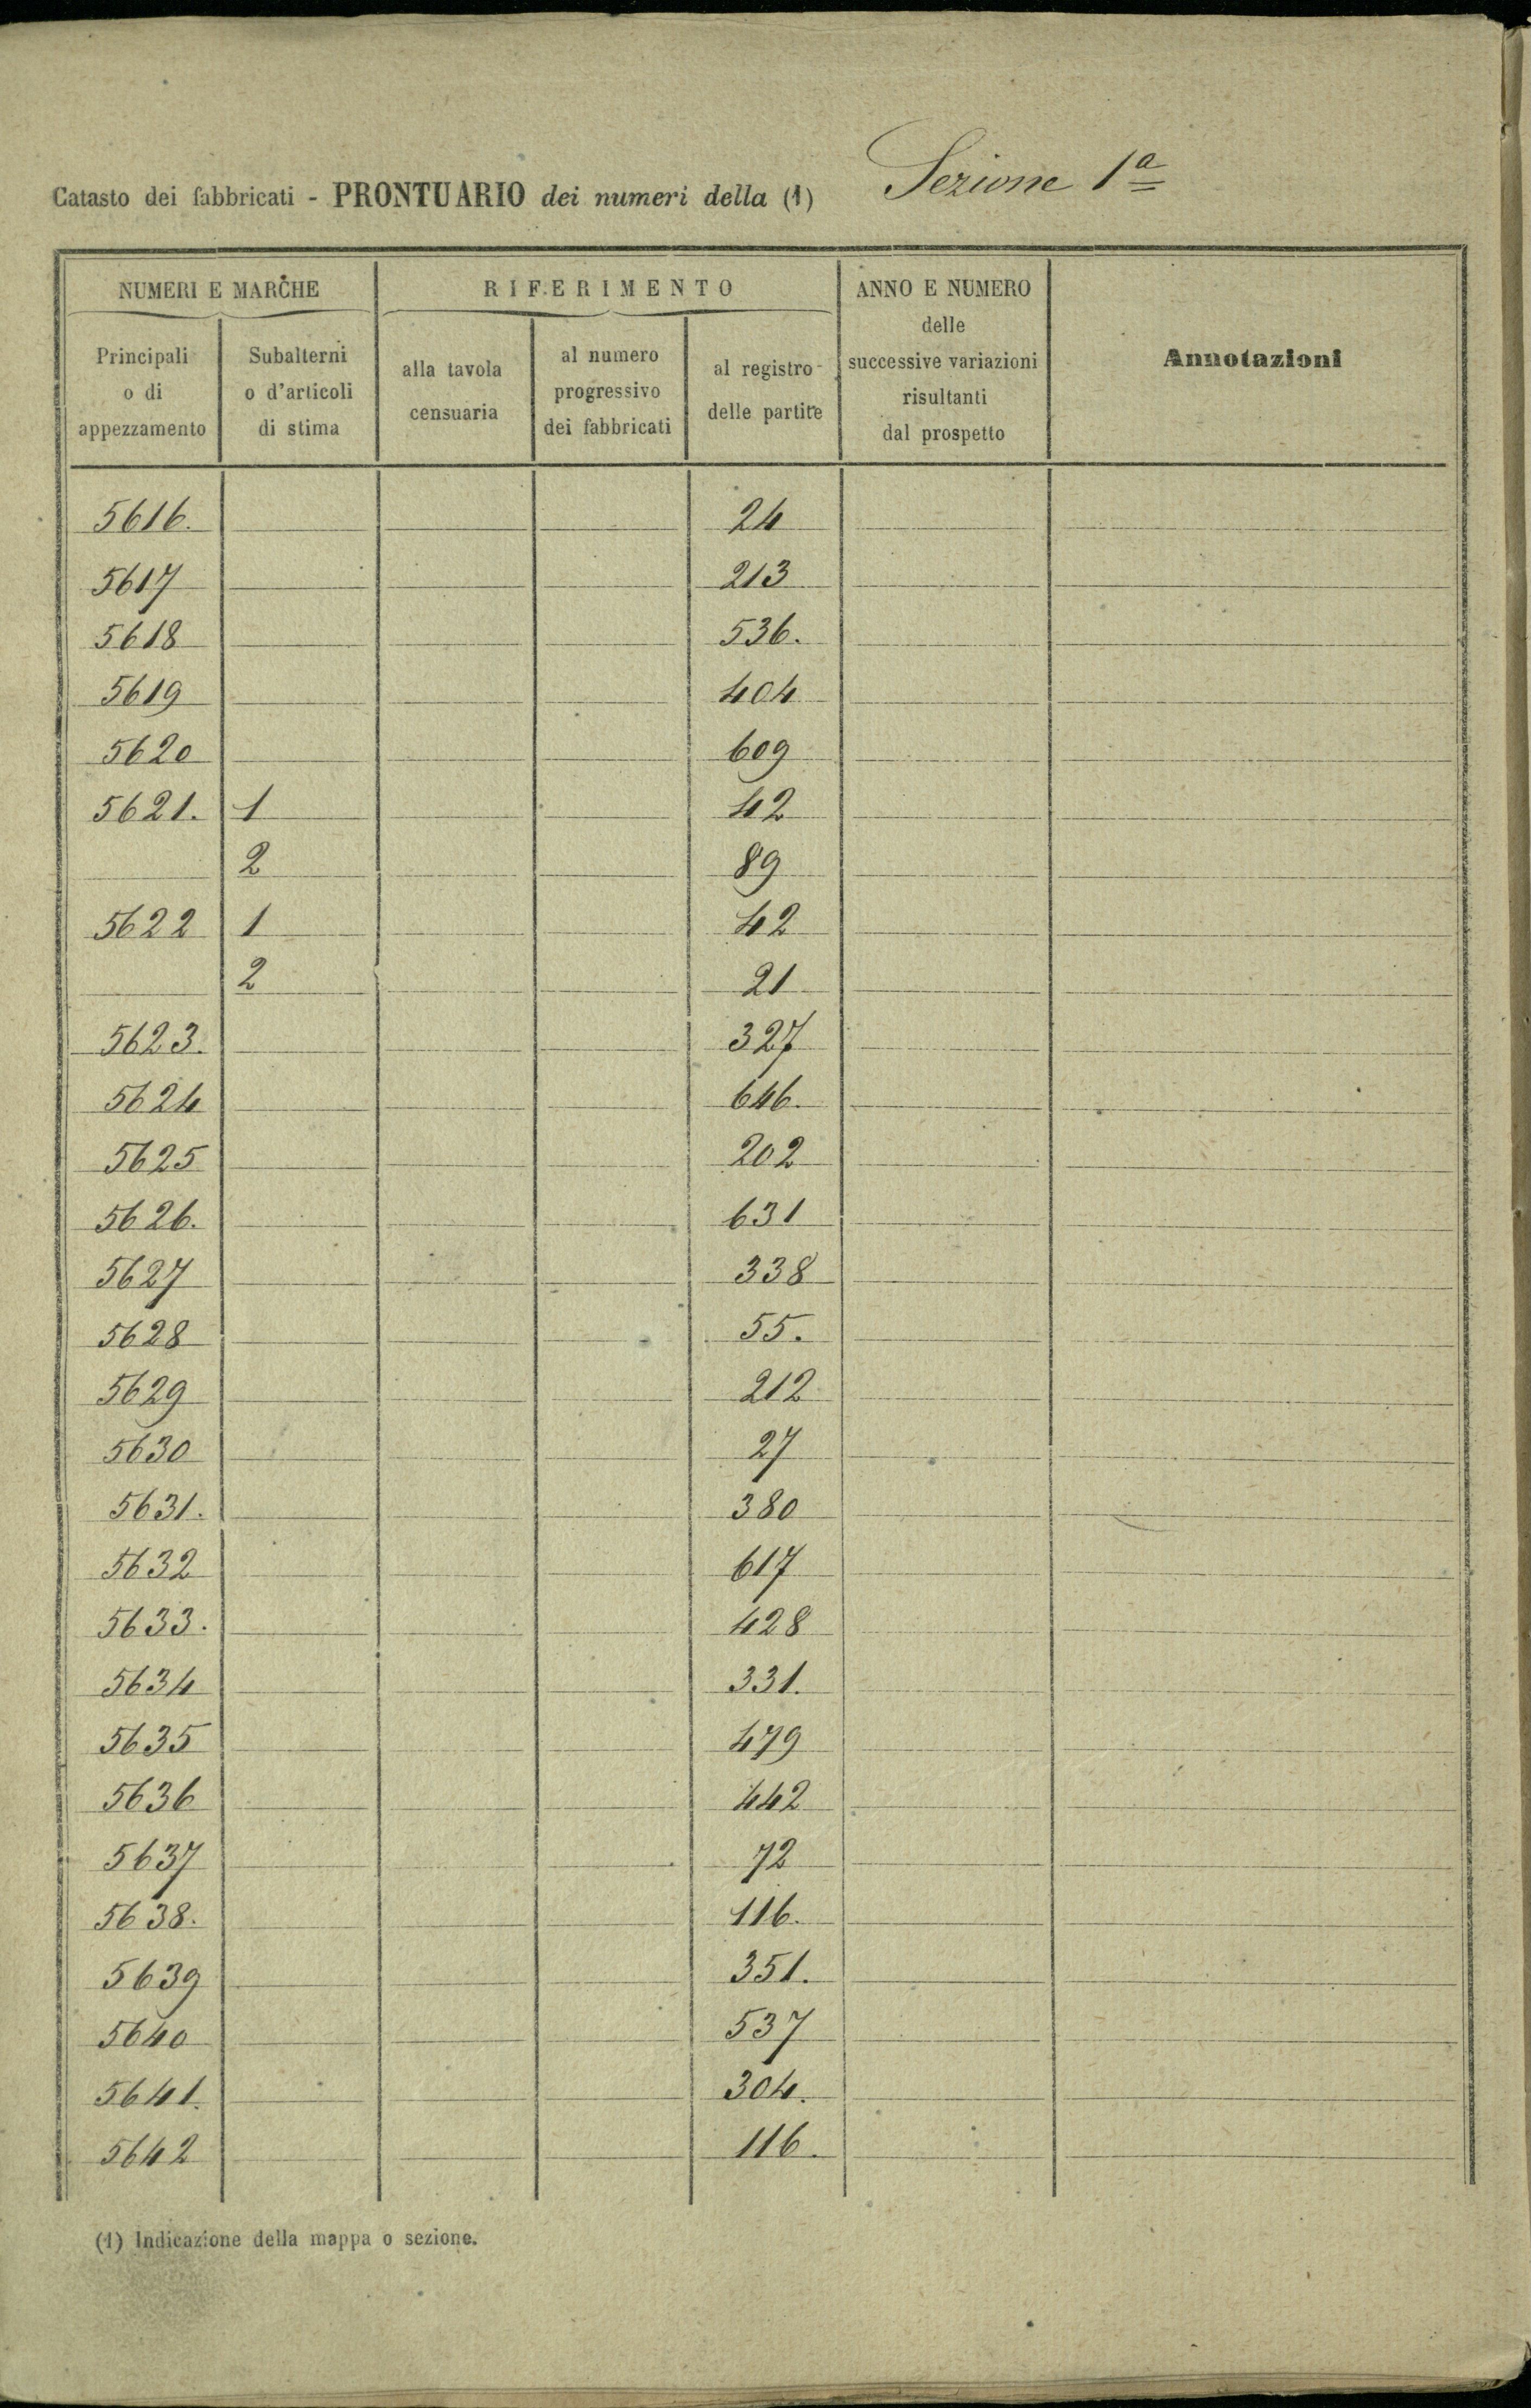 Catasto dei fabbricati - PRONTUARIO dei numeri della (1) Sezione 1ª
NUMERI E MARCHE
RIFERIMENTO
ANNO E NUMERO
delle
successive variazioni
risultanti
dal prospetto
Annotazioni
Principali
o di
appezzamento
Subalterni
o d'articoli
di stima
alla tavola
censuaria
al numero
progressivo
dei fabbricati
al registro
delle partite
5616. 24
5617 213
5618 536.
5619 404
5620 609
5621. 1 42
2 89
5622 1 42
2 21
5623. 327
5624 646.
5625 202
5626. 631
5627 338
5628 55.
5629 212
5630 27
5631. 380
5632 617
5633. 428
5634 331.
5635 479
5636 442
5637 72
5638. 116.
5639 351.
5640 537
5641. 304.
5642 116.
(1) Indicazione della mappa o sezione.